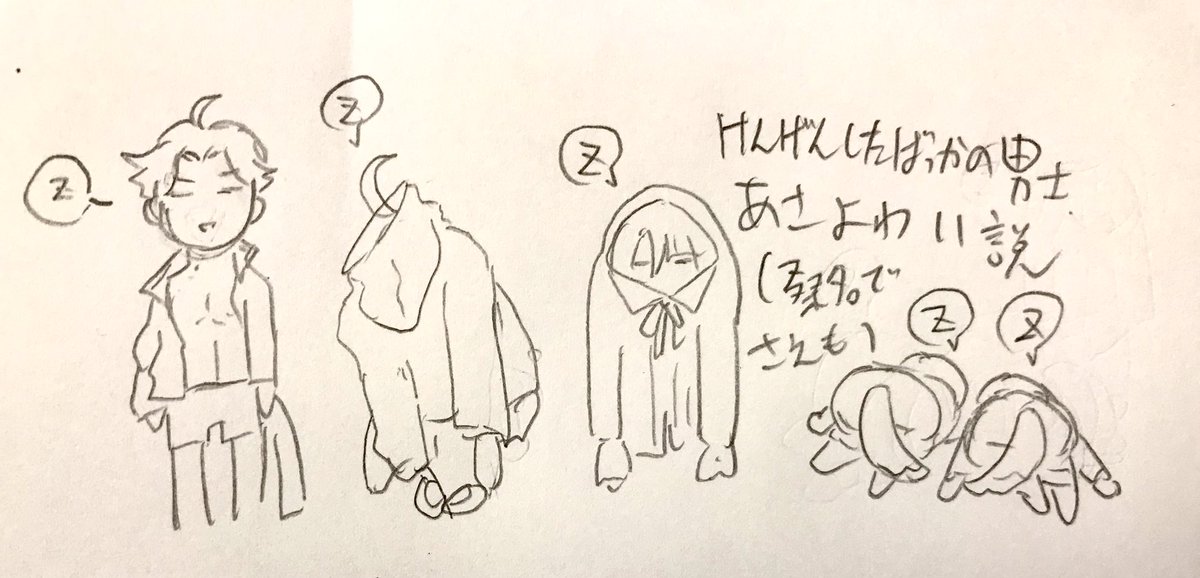 Z
Z
Z
けんげんしたばっかの男士
あさよわい説
で
さえも)
Z
Z